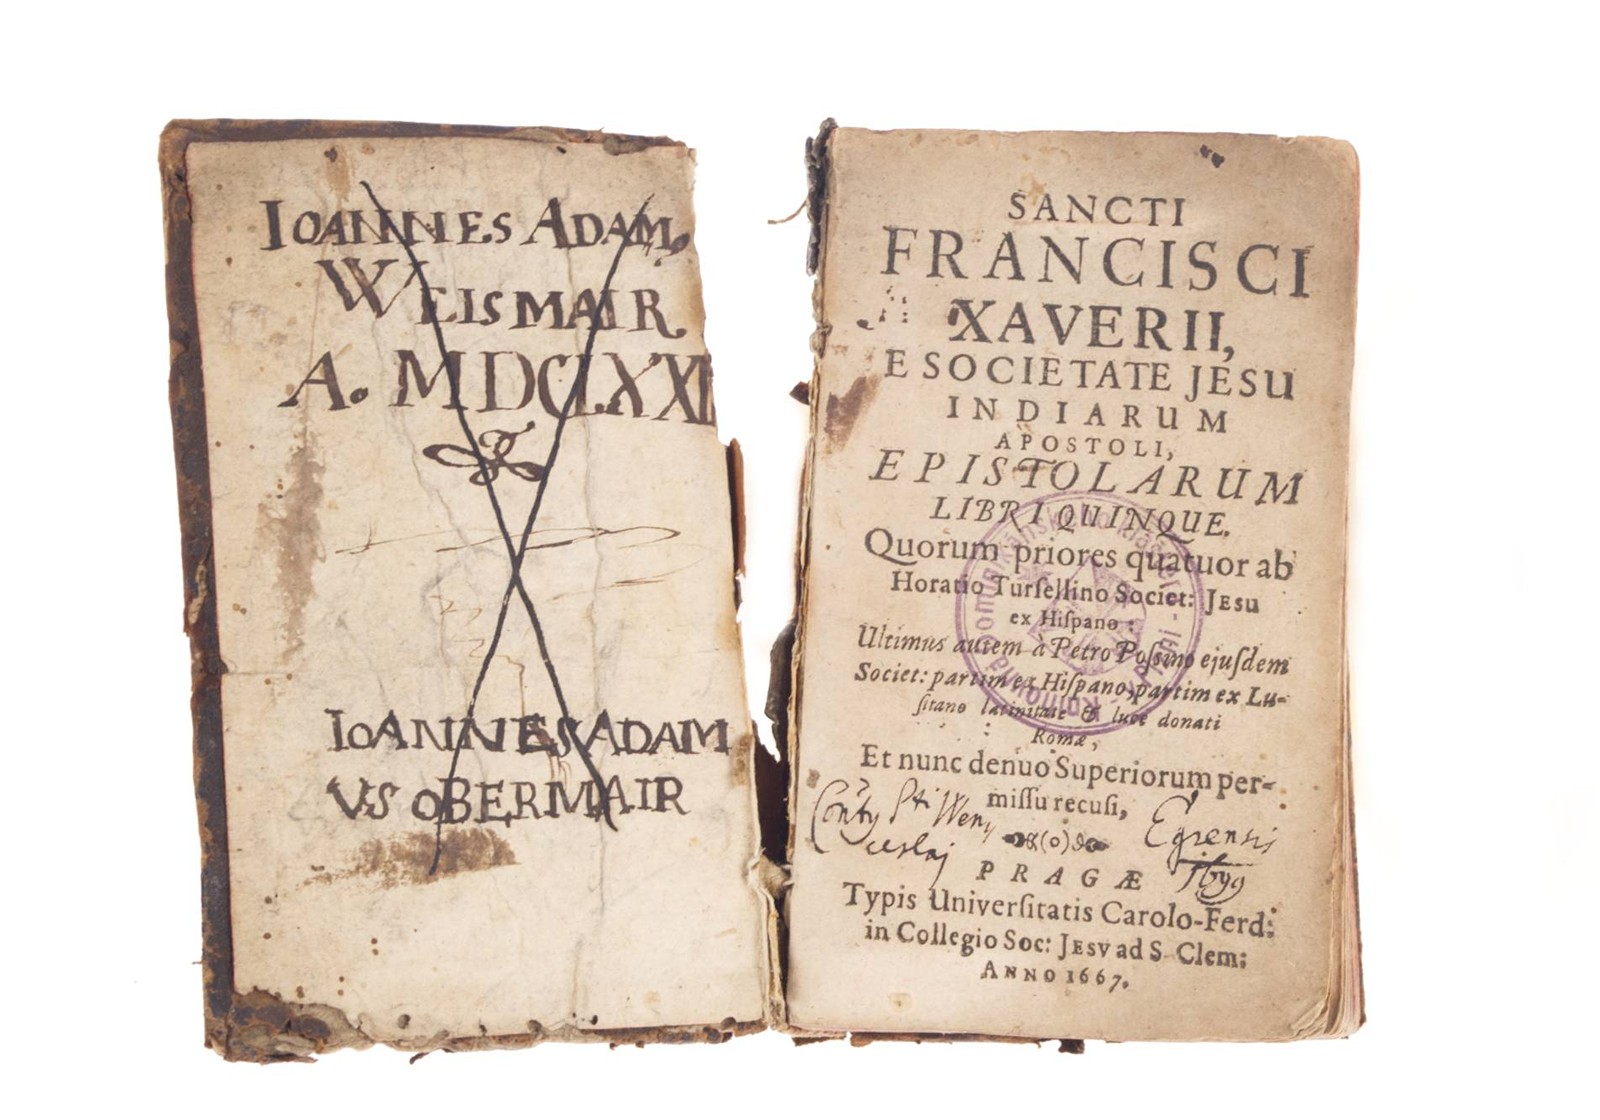 IOANNES ADAM,
WEISMAIR
A. MDCLXXI
IOANNES ADAM
VS OBERMAIR
SANCTI
FRANCISCI
XAVERII,
E SOCIETATE JESU
INDIARUM
APOSTOLI,
EPISTOLARUM
LIBRI QUINQUE.
Quorum priores quatuor ab
Horatio Turſellino Societ: JESU
ex Hiſpano:
Ultimus autem à Petro Poſsino ejuſdem
Societ: partim ex Hiſpano, partim ex Lu-
ſitano latinitate & luce donati
Romæ,
Et nunc denuo Superiorum per-
miſſu recuſi,
Sti Wen
ceslaj
Egrensis
(o)
PRAGÆ
Typis Univerſitatis Carolo-Ferd:
in Collegio Soc: JESV ad S. Clem:
ANNO 1667.
Knihovna Dominikánského kláštera